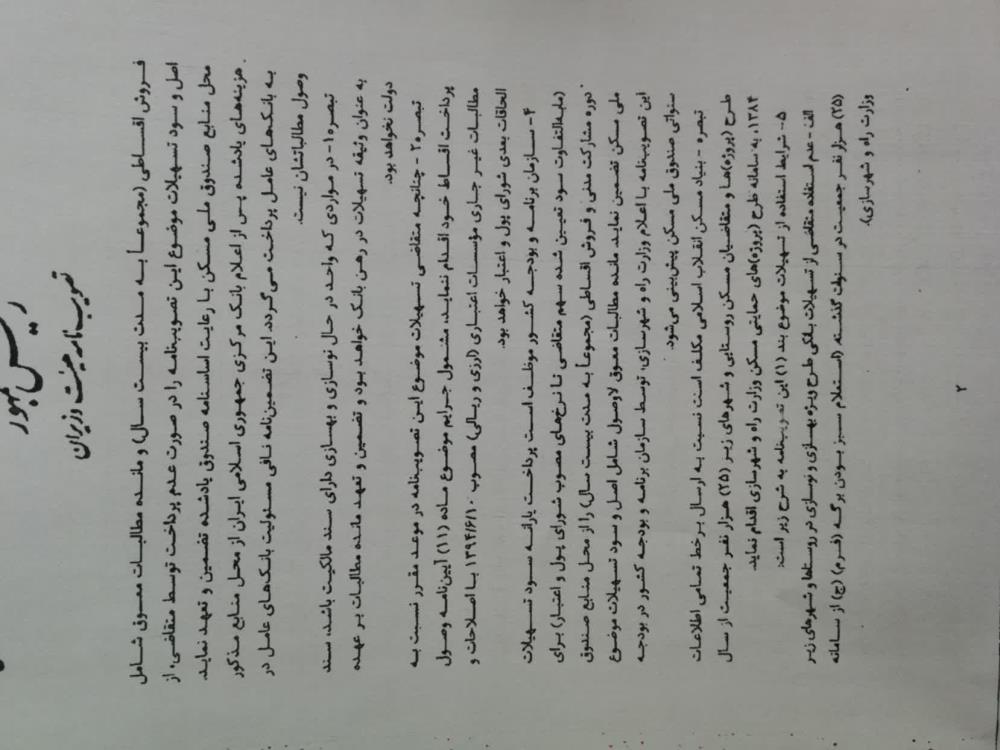 رئیس جمهور
تصویب نامه هیئت وزیران
فروش اقساطی (مجموعاً به مدت بیست سال) و مانده مطالبات معوق شامل
اصل و سود تسهیلات موضوع این تصویب‌نامه را در صورت عدم پرداخت توسط متقاضی، از
محل منابع صندوق ملی مسکن با رعایت اساسنامه صندوق یادشده تضمین و تعهد نماید.
هزینه‌های یادشده پس از اعلام بانک مرکزی جمهوری اسلامی ایران از محل منابع مذکور
به بانک‌های عامل پرداخت می‌گردد. این تضمین‌نامه نافی مسئولیت بانک‌های عامل در
وصول مطالباتشان نیست.
تبصره۱- در مواردی که واحد در حال نوسازی و بهسازی دارای سند مالکیت باشد، سند
به عنوان وثیقه تسهیلات در رهن بانک خواهد بود و تضمین و تعهد مانده مطالبات بر عهده
دولت نخواهد بود.
تبصره۲- چنانچه متقاضی تسهیلات موضوع این تصویب‌نامه در موعد مقرر نسبت به
پرداخت اقساط خود اقدام ننماید، مشمول جرایم موضوع ماده (۱۱) آیین‌نامه وصول
مطالبات غیر جاری مؤسسات اعتباری (ارزی و ریالی) مصوب ۱۳۹۴/۶/۱۰ با اصلاحات و
الحاقات بعدی شورای پول و اعتبار خواهد بود.
۴- سازمان برنامه و بودجه کشور موظف است پرداخت یارانه سود تسهیلات
(مابه‌التفاوت سود تعیین شده سهم متقاضی تا نرخ‌های مصوب شورای پول و اعتبار) برای
دوره مشارکت مدنی و فروش اقساطی (مجموعاً به مدت بیست سال) را از محل منابع صندوق
ملی مسکن تضمین نماید. مانده مطالبات معوق لاوصول شامل اصل و سود تسهیلات موضوع
این تصویب‌نامه با اعلام وزارت راه و شهرسازی، توسط سازمان برنامه و بودجه کشور در بودجه
سنواتی صندوق ملی مسکن پیش‌بینی می‌شود.
تبصره - بنیاد مسکن انقلاب اسلامی مکلف است نسبت به ارسال برخط تمامی اطلاعات
طرح (پروژه)ها و متقاضیان مسکن روستایی و شهرهای زیر (۲۵) هزار نفر جمعیت از سال
۱۳۸۴، به سامانه طرح (پروژه)های حمایتی مسکن وزارت راه و شهرسازی اقدام نماید.
۵- شرایط استفاده از تسهیلات موضوع بند (۱) این تصویب‌نامه به شرح زیر است:
الف - عدم استفاده متقاضی از تسهیلات بانکی طرح ویژه بهسازی و نوسازی در روستاها و شهرهای زیر
(۲۵) هزار نفر جمعیت در سنوات گذشته (استعلام سبز بودن برگه (فرم) (ج) از سامانه
وزارت راه و شهرسازی).
۲